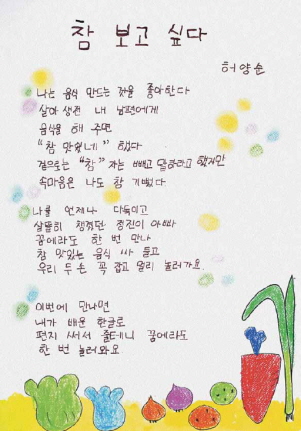 참 보고 싶다
허양순
나는 음식 만드는 것을 좋아한다
살아 생전 내 남편에게
음식을 해 주면
"참 맛있네" 했다
겉으로는 "참" 자는 빼고 말하라고 했지만
속마음은 나도 참 기뻤다
나를 언제나 다독이고
살뜰히 챙겼던 정진이 아빠
꿈에라도 한 번 만나
참 맛있는 음식 싸 들고
우리 두 손 꼭 잡고 멀리 놀러가요.
이번에 만나면
내가 배운 한글로
편지 써서 줄테니 꿈에라도
한 번 놀러와요